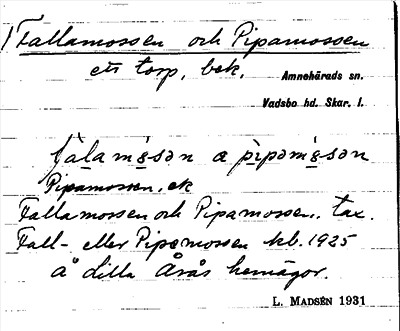 Fallamossen och Pipamossen
ett torp, bek.
Amnehärads sn.
Vadsbo hd. Skar. l.
fàlamɷ̀sən a pìpəmɷ̀sən
Pipamossen, ek
Fallamossen och Pipamossen, tax.
Fall- eller Pipemossen kb. 1925
Å Lilla Årås hemägor.
L. MADSÉN 1931